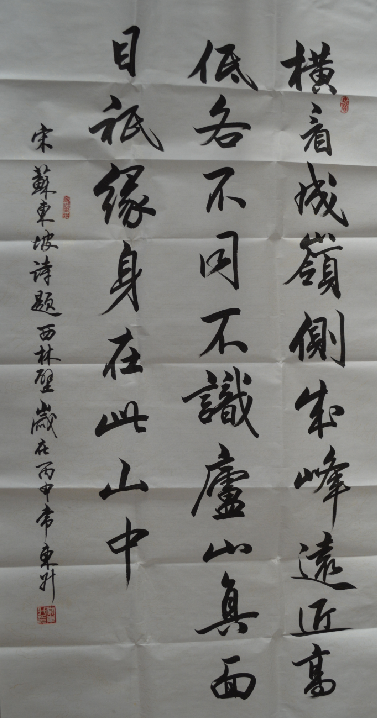 橫看成嶺側成峰遠近高
低各不同不識廬山真面
目祇緣身在此山中
宋蘇東坡詩題西林壁歲在丙申常東升